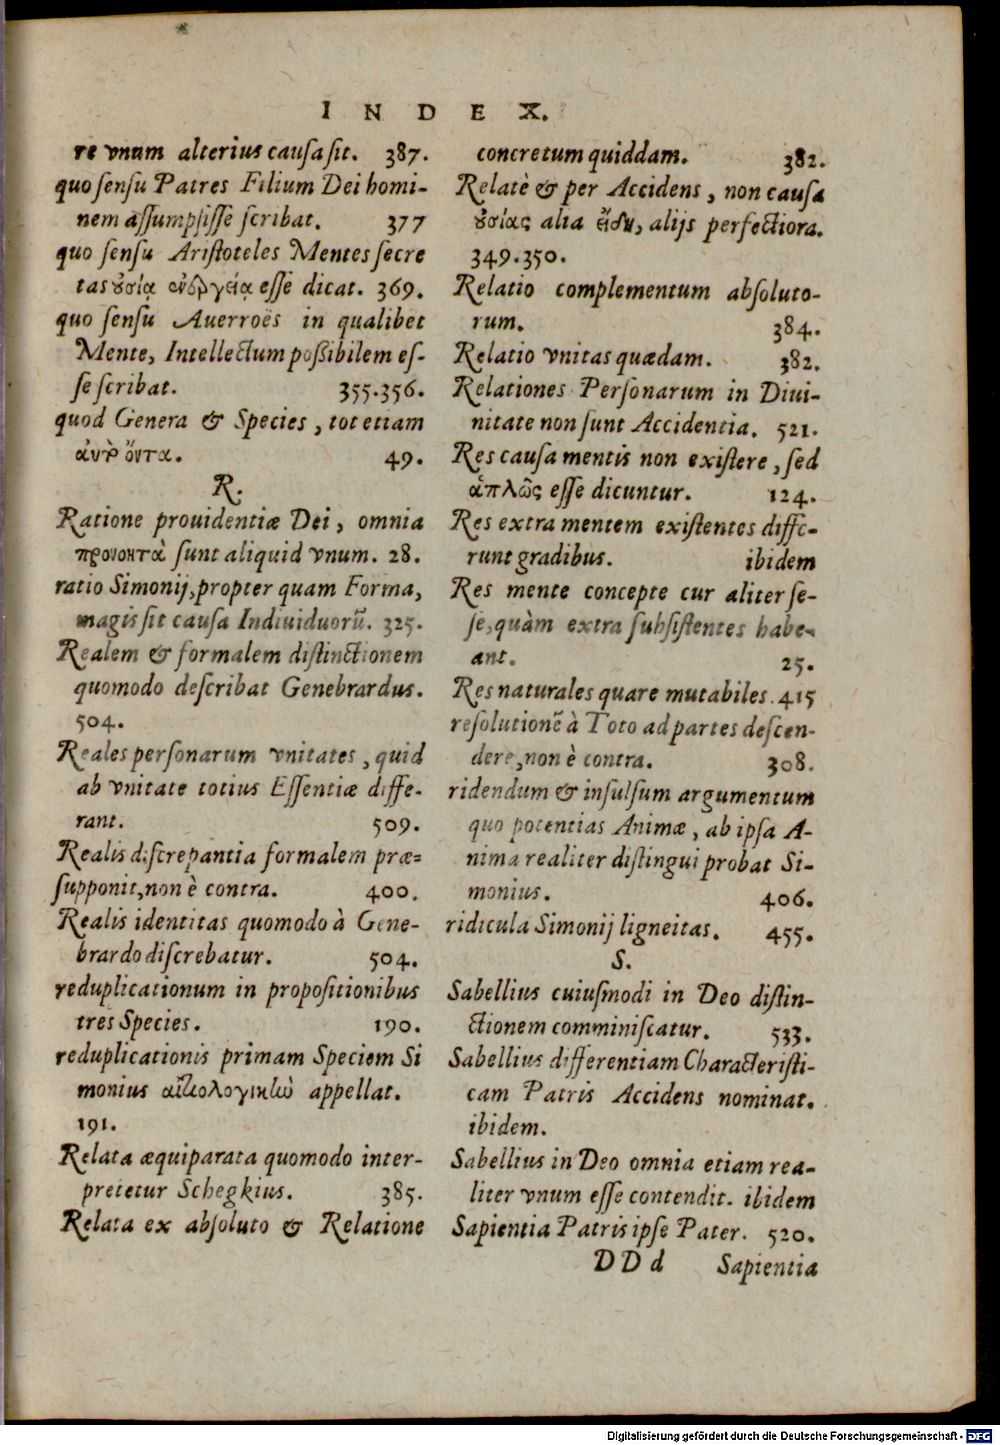 INDEX.
re vnum alterius causa sit. 387.
quo sensu Patres Filium Dei homi-
nem assumpsisse scribat. 377
quo sensu Aristoteles Mentes secre
tas οὐσίᾳ ἐνεργείᾳ esse dicat. 369.
quo sensu Auerroës in qualibet
Mente, Intellectum possibilem es-
se scribat. 355.356.
quod Genera & Species, tot etiam
ὄντα. 49.
R.
Ratione prouidentiæ Dei, omnia
προνοητὰ sunt aliquid vnum. 28.
ratio Simonij, propter quam Forma,
magis sit causa Indiuiduorũ. 325.
Realem & formalem distinctionem
quomodo describat Genebrardus.
504.
Reales personarum vnitates, quid
ab vnitate totius Essentiæ diffe-
rant. 509.
Realis discrepantia formalem præ-
supponit, non è contra. 400.
Realis identitas quomodo à Gene-
brardo discrebatur. 504.
reduplicationum in propositionibus
tres Species. 190.
reduplicationis primam Speciem Si
monius αἰτιολογικὼ appellat.
191.
Relata æquiparata quomodo inter-
pretetur Schegkius. 385.
Relata ex absoluto & Relatione
concretum quiddam. 382.
Relatè & per Accidens, non causa
οὐσίας alia εἴδη, alijs perfectiora.
349.350.
Relatio complementum absoluto-
rum. 384.
Relatio vnitas quædam. 382.
Relationes Personarum in Diui-
nitate non sunt Accidentia. 521.
Res causa mentis non existere, sed
ἁπλῶς esse dicuntur. 124.
Res extra mentem existentes diffe-
runt gradibus. ibidem
Res mente concepte cur aliter se-
se, quàm extra subsistentes habe-
ant. 25.
Res naturales quare mutabiles. 415
resolutionẽ à Toto ad partes descen-
dere, non è contra. 308.
ridendum & insulsum argumentum
quo potentias Animæ, ab ipsa A-
nima realiter distingui probat Si-
monius. 406.
ridicula Simonij ligneitas. 455.
S.
Sabellius cuiusmodi in Deo distin-
ctionem comminiscatur. 533.
Sabellius differentiam Characteristi-
cam Patris Accidens nominat.
ibidem.
Sabellius in Deo omnia etiam rea-
liter vnum esse contendit. ibidem
Sapientia Patris ipse Pater. 520.
DDd Sapientia
Digitalisierung gefördert durch die Deutsche Forschungsgemeinschaft - DFG